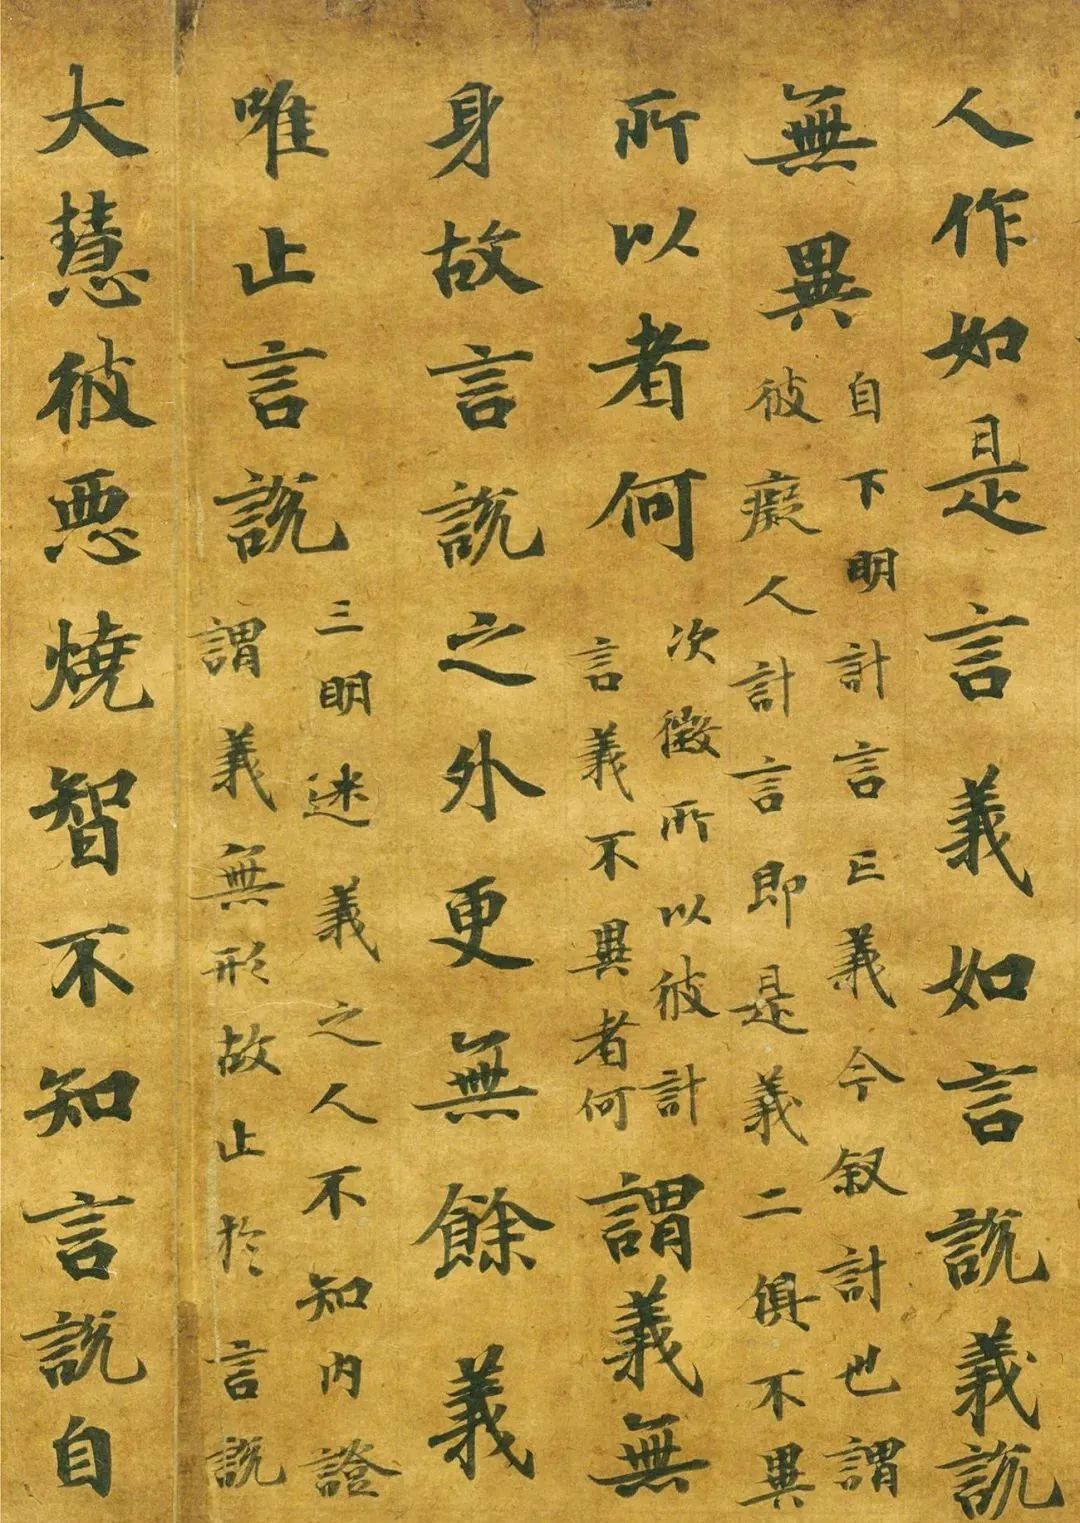 人作如是言義如言說義說
無異
自下明計言義今叙計也謂
彼癡人計言即是義二俱不異
所以者何
次徵所以彼計
言義不異者何
謂義無
身故言說之外更無餘義
唯止言說
三明迷義之人不知内證
謂義無形故止於言說
大慧彼悪燒智不知言說自